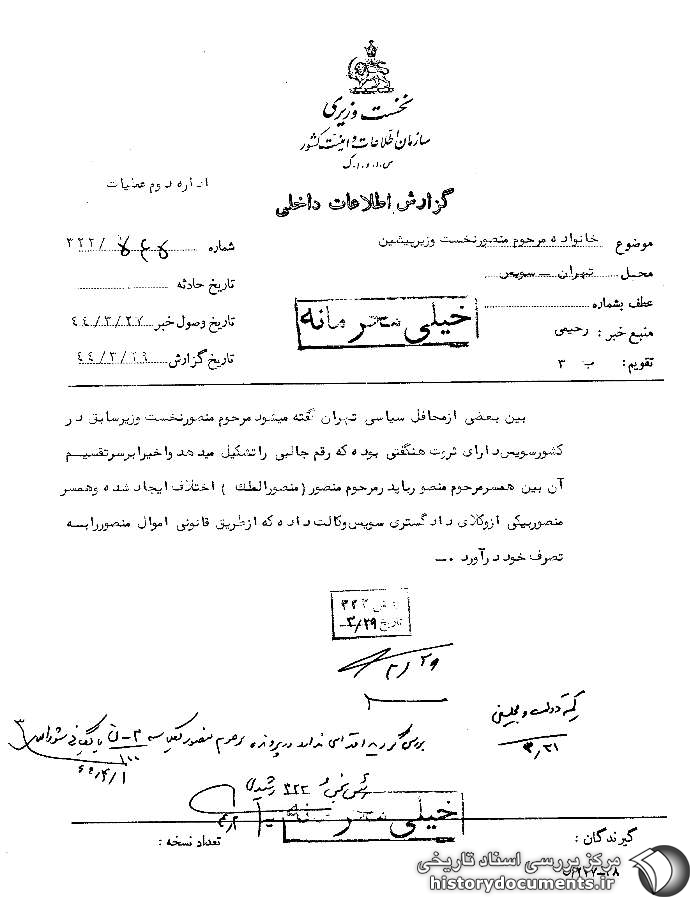 نخست وزیری
سازمان اطلاعات و امنیت کشور
س.ا.و.ا.ک
اداره دوم عملیات
گزارش اطلاعات داخلی
موضوع خانواده مرحوم منصور نخست وزیر پیشین
شماره ۳۲۲/
محل تهران — سویس
تاریخ حادثه
عطف بشماره
خیلی محرمانه
تاریخ وصول خبر ۴۴/۳/۲۷
منبع خبر : رحیمی
تاریخ گزارش ۴۴/۳/۲۹
تقویم : ب ۳
بین بعضی ازمحافل سیاسی تهران گفته میشود مرحوم منصورنخست وزیرسابق در
کشورسویس دارای ثروت هنگفتی بوده که رقم جالبی راتشکیل میدهد واخیرا برسرتقسیم
آن بین همسرمرحوم منصور باپدرمرحوم منصور (منصورالملك) اختلاف ایجاد شده وهمسر
منصوربیکی ازوکلای دادگستری سویس وکالت داده که ازطریق قانونی اموال منصوررابه
تصرف خود درآورد .—
بخش ۳۲۲
تاریخ ۳/۲۹
۳/۲۹
۳/۳۱
بررسی گردید اقدامی ندارد در پرونده مرحوم منصور
رئیس بخش ۳۲۲ رشیدی
خیلی محرمانه
گیرندگان :
تعداد نسخه :
مرکز بررسی اسناد تاریخی
historydocuments.ir